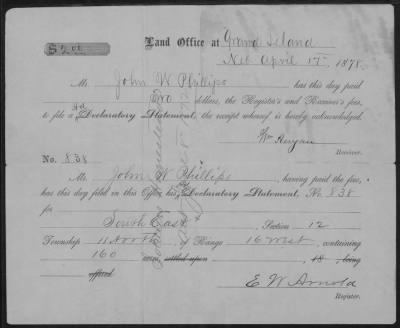 $2.00 Land Office at Grand Island
Neb April 17 1878
Mr. John W Phillips has this day paid
two dollars, the Register's and Receiver's fees,
to file a Declaratory Statement, the receipt whereof is hereby acknowledged.
Wm Anyan
Receiver.
No. 838
Mr. John W Phillips, having paid the fees,
has this day filed in this Office, his Declaratory Statement, No 838
for
South East Section 12
Township 11 North of Range 16 West, containing
160 acres, settled upon 18 , being
offered.
E W Arnold
Register.